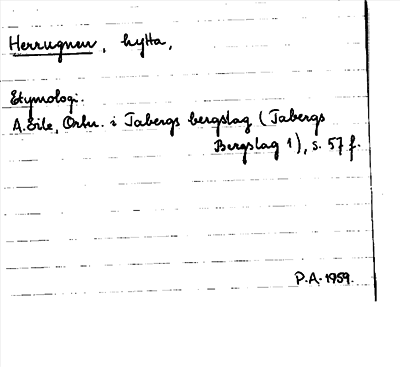 Herrugnen, hytta,
Etymologi:
A. Eile, Ortn. i Tabergs bergslag (Tabergs
Bergslag 1), s. 57 f.
P.A. 1959.